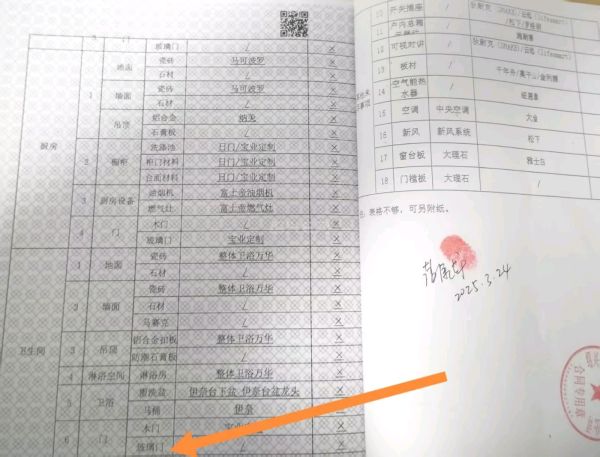 玻璃门 / ×
厨房
1 地面 瓷砖 马可波罗 ×
石材 / ×
墙面 瓷砖 马可波罗 ×
石材 / ×
吊顶 铝合金 ×
石膏板 / ×
2 橱柜 洗涤池 日门/宝业定制 ×
柜门材料 日门/宝业定制 ×
台面材料 日门/宝业定制 ×
3 厨房设备 油烟机 富士帝油烟机 ×
燃气灶 富士帝燃气灶 ×
4 门 木门 / ×
玻璃门 宝业定制 ×
卫生间
1 地面 瓷砖 整体卫浴万华 ×
石材 / ×
2 墙面 瓷砖 整体卫浴万华 ×
石材 / ×
马赛克 / ×
3 吊顶 铝合金扣板 整体卫浴万华 ×
防潮石膏板 / ×
4 淋浴空间 淋浴房 整体卫浴万华 ×
5 卫浴 盥洗盆 伊奈台下盆 伊奈台盆龙头 ×
马桶 伊奈 ×
6 门 木门 宝业定制 ×
玻璃门 / ×
10 开关插座 /
/松下/罗格朗
11 /
12 可视对讲 /
13 板材 /
14 空气能热水器 /
15 空调 中央空调 大金
16 新风 新风系统 松下
17 窗台板 大理石 雅士白
18 门槛板 大理石 /
注：表格不够，可另附纸。
2025.3.24
合同专用章